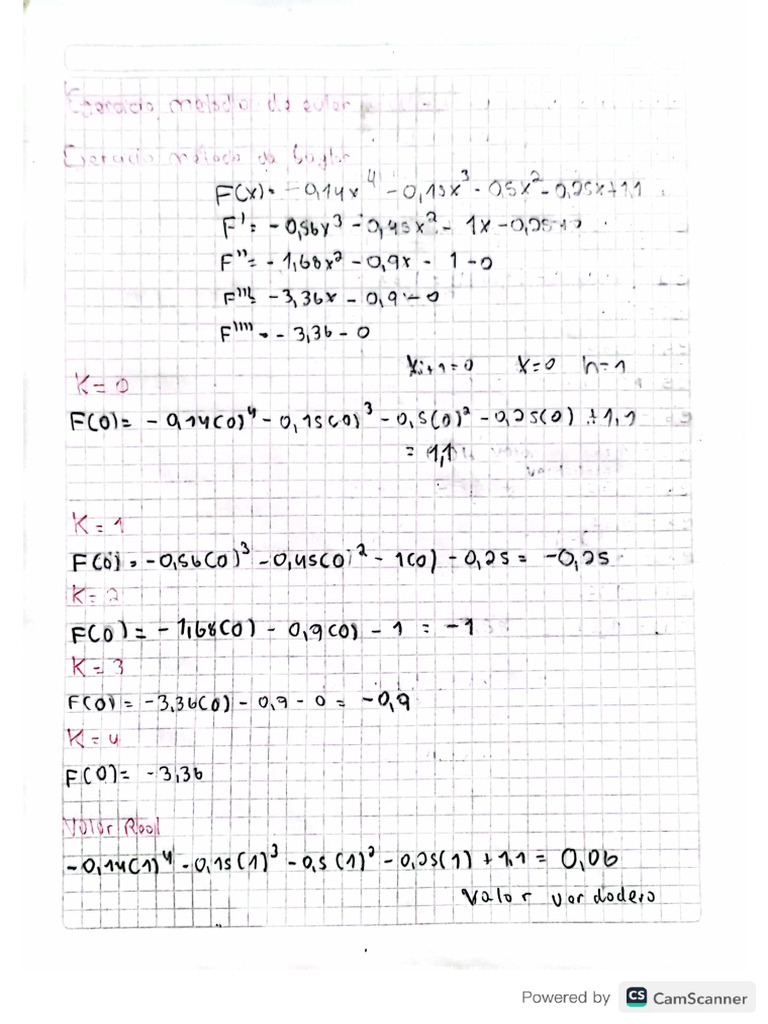 Ejercicio metodo de euler
Ejercicio metodo de Taylor
F(x)= -0,14x⁴ - 0,15x³ - 0,5x² - 0,25x + 1,1
F' = -0,56x³ - 0,45x² - 1x - 0,25 + 0
F'' = -1,68x² - 0,9x - 1 - 0
F''' = -3,36x - 0,9 - 0
F'''' = -3,36 - 0
Xi+1=0 X=0 h=1
K=0
F(0)= -0,14(0)⁴ - 0,15(0)³ - 0,5(0)² - 0,25(0) + 1,1
= 1,1
K=1
F(0) = -0,56(0)³ - 0,45(0)² - 1(0) - 0,25 = -0,25
K=2
F(0) = -1,68(0) - 0,9(0) - 1 = -1
K=3
F(0) = -3,36(0) - 0,9 - 0 = -0,9
K=4
F(0)= -3,36
Valor Real
-0,14(1)⁴ - 0,15(1)³ - 0,5(1)² - 0,25(1) + 1,1 = 0,06
Valor verdadero
Powered by CS CamScanner